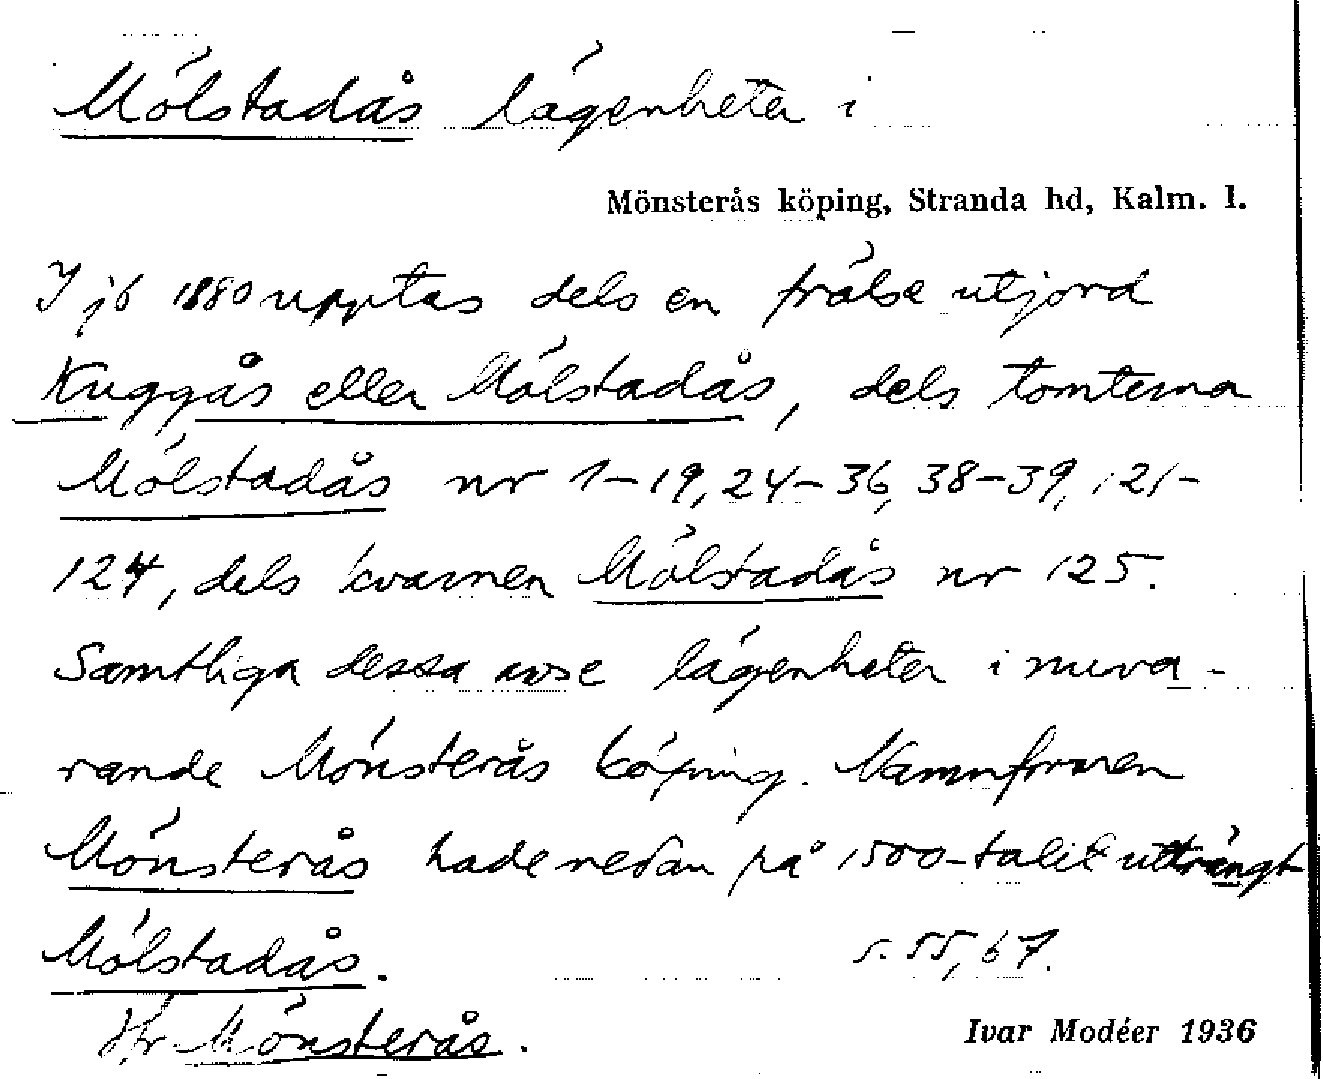 Mölstadås lägenheter i
Mönsterås köping, Stranda hd, Kalm. l.
I jb 1880 upptas dels en frälse utjord
Kuggås eller Mölstadås, dels tomterna
Mölstadås nr 1–19, 24–36, 38–39, 121–
124, dels kvarnen Mölstadås nr 125.
Samtliga dessa avse lägenheter i nuva-
rande Mönsterås köping. Namnformen
Mönsterås hade redan på 1500-talet utträngt
Mölstadås. s. 55, 67.
Jfr Mönsterås.
Ivar Modéer 1936